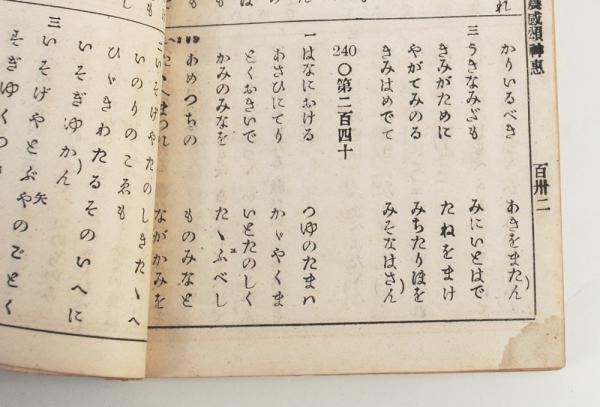 農感頌神惠
百卅二
かりいるべき　あきをまたん）
三 うきなみだも　みにいとはで
きみがために　たねをまけ
やがてみのる　みちたりほを
きみはめでて　みそなはさん）
240〇第二百四十
一 はなにおける　つゆのたまハ
あさひにてり　かゞやくま
とくおきいで　いとたのしく
かみのみなを　たゝふべし
あめつちの　ものみなと
ながかみを
こいそげやたの しきたゝへ
いのりのこゑも
ひゞきわたる そのいへに
いそぎゆかん）
三 いそげやとぶ 矢やのごとく